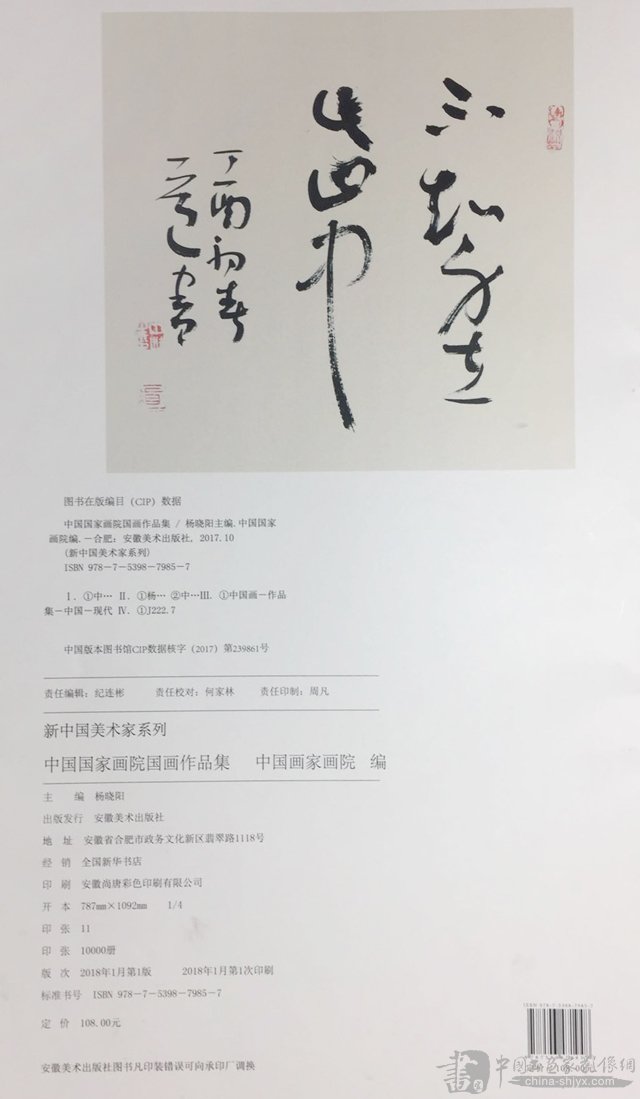 不知身在
此山中
丁酉初春
一道书
图书在版编目（CIP）数据
中国国家画院国画作品集 / 杨晓阳主编. 中国国家
画院编. －合肥：安徽美术出版社, 2017.10
(新中国美术家系列)
ISBN 978－7－5398－7985－7
Ⅰ. ①中… Ⅱ. ①杨… ②中…Ⅲ. ①中国画－作品
集－中国－现代 Ⅳ. ①J222.7
中国版本图书馆CIP数据核字（2017）第239861号
责任编辑：纪连彬 责任校对：何家林 责任印制：周凡
新中国美术家系列
中国国家画院国画作品集 中国画家画院 编
主 编 杨晓阳
出版发行 安徽美术出版社
地 址 安徽省合肥市政务文化新区翡翠路1118号
经 销 全国新华书店
印 刷 安徽尚唐彩色印刷有限公司
开 本 787mm×1092mm 1/4
印 张 11
印 张 10000册
版 次 2018年1月第1版 2018年1月第1次印刷
标准书号 ISBN 978－7－5398－7985－7
定 价 108.00元
安徽美术出版社图书凡印装错误可向承印厂调换
ISBN 978-7-5398-7985-7
china-shjyx.com